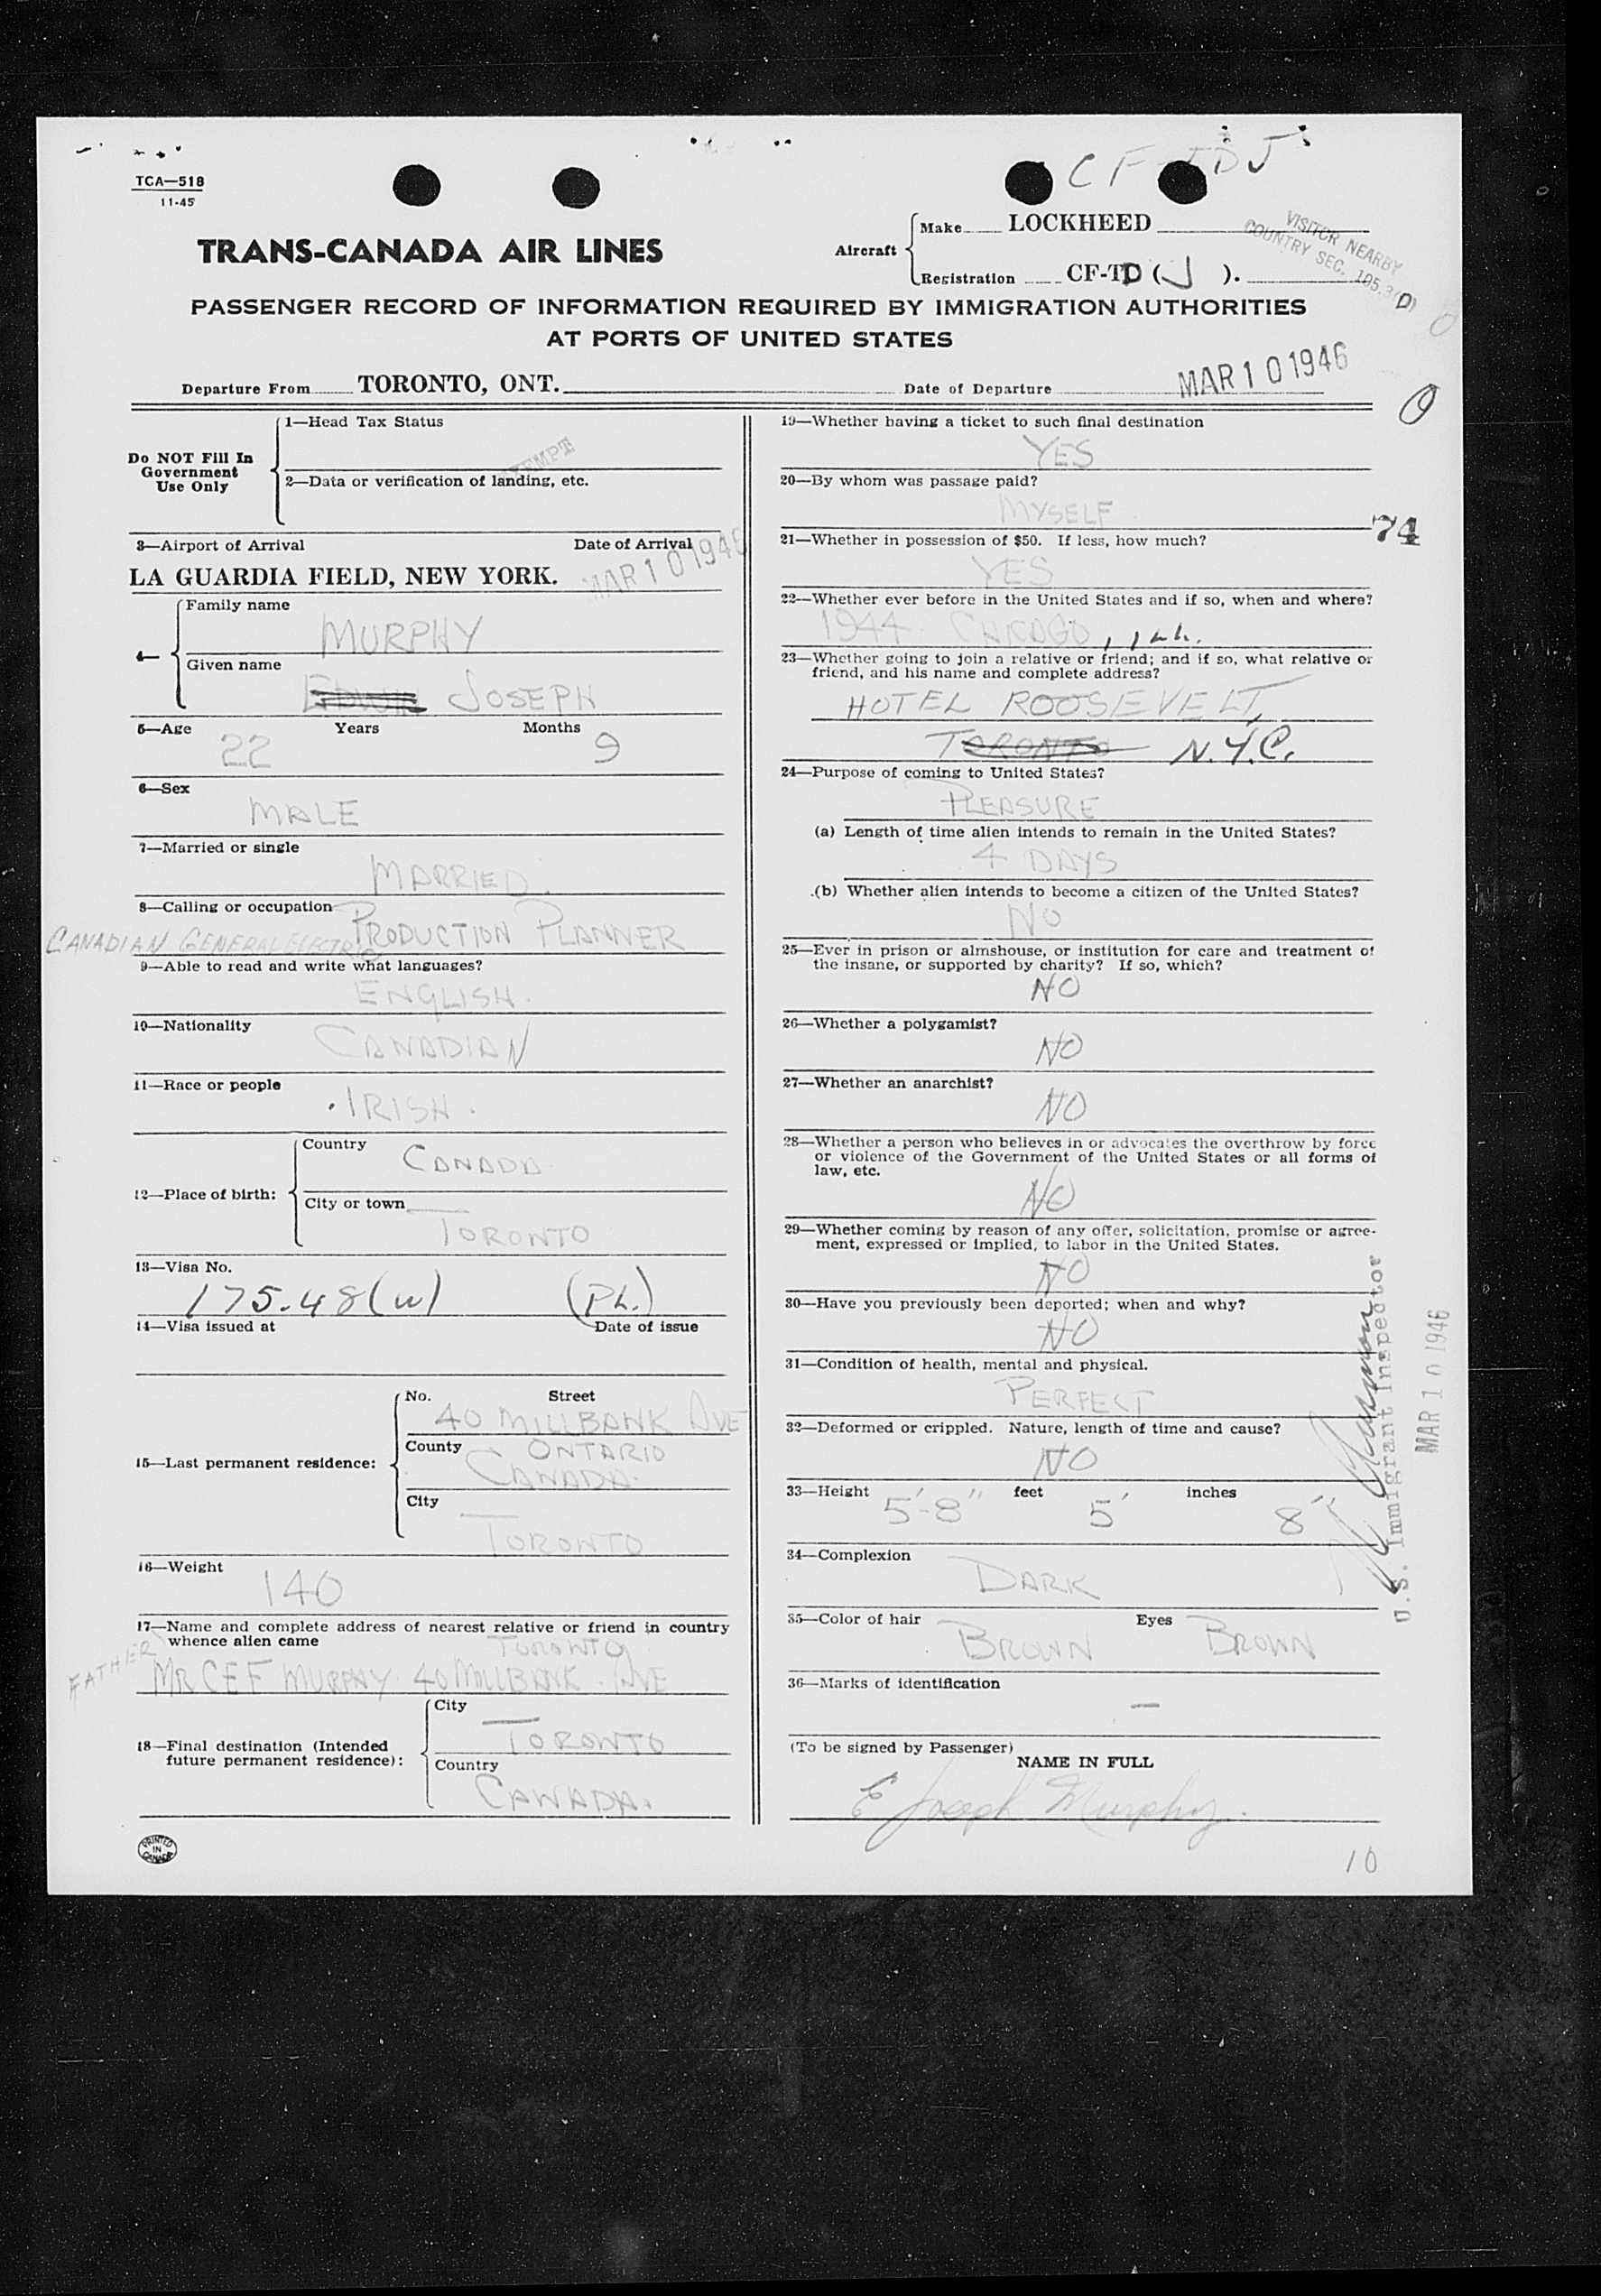 CF-TDJ
TCA—518
11-45
TRANS-CANADA AIR LINES
Aircraft
Make LOCKHEED
Registration CF-TD (J).
VISITOR NEARBY
COUNTRY SEC. 105.3(D)
PASSENGER RECORD OF INFORMATION REQUIRED BY IMMIGRATION AUTHORITIES
AT PORTS OF UNITED STATES
Departure From TORONTO, ONT. Date of Departure MAR 10 1946
Do NOT Fill In
Government
Use Only
1—Head Tax Status
EXEMPT
2—Data or verification of landing, etc.
3—Airport of Arrival Date of Arrival
LA GUARDIA FIELD, NEW YORK. MAR 10 1946
4—
Family name
MURPHY
Given name
EDWIN JOSEPH
5—Age Years Months
22 9
6—Sex
MALE
7—Married or single
MARRIED.
8—Calling or occupation
CANADIAN GENERAL ELECTRIC PRODUCTION PLANNER
9—Able to read and write what languages?
ENGLISH.
10—Nationality
CANADIAN
11—Race or people
IRISH.
12—Place of birth:
Country
CANADA
City or town
TORONTO
13—Visa No.
175.48(w) (Ph.)
14—Visa issued at Date of issue
15—Last permanent residence:
No. Street
40 MILLBANK AVE
County ONTARIO
CANADA.
City
TORONTO
16—Weight
140
17—Name and complete address of nearest relative or friend in country
whence alien came
TORONTO
FATHER MR CEF MURPHY 40 MILLBANK AVE
18—Final destination (Intended
future permanent residence):
City
TORONTO
Country
CANADA.
PRINTED
IN
CANADA
19—Whether having a ticket to such final destination
YES
20—By whom was passage paid?
MYSELF
74
21—Whether in possession of $50. If less, how much?
YES
22—Whether ever before in the United States and if so, when and where?
1944 CHICAGO, Ill.
23—Whether going to join a relative or friend; and if so, what relative or
friend, and his name and complete address?
HOTEL ROOSEVELT,
TORONTO N.Y.C.
24—Purpose of coming to United States?
PLEASURE
(a) Length of time alien intends to remain in the United States?
4 DAYS
(b) Whether alien intends to become a citizen of the United States?
NO
25—Ever in prison or almshouse, or institution for care and treatment of
the insane, or supported by charity? If so, which?
NO
26—Whether a polygamist?
NO
27—Whether an anarchist?
NO
28—Whether a person who believes in or advocates the overthrow by force
or violence of the Government of the United States or all forms of
law, etc.
NO
29—Whether coming by reason of any offer, solicitation, promise or agree-
ment, expressed or implied, to labor in the United States.
NO
30—Have you previously been deported; when and why?
NO
31—Condition of health, mental and physical.
PERFECT
32—Deformed or crippled. Nature, length of time and cause?
NO
33—Height 5'-8" feet 5' inches 8"
34—Complexion
DARK
35—Color of hair Eyes
BROWN BROWN
36—Marks of identification
—
(To be signed by Passenger)
NAME IN FULL
E Joseph Murphy.
U.S. Immigrant Inspector
MAR 10 1946
10